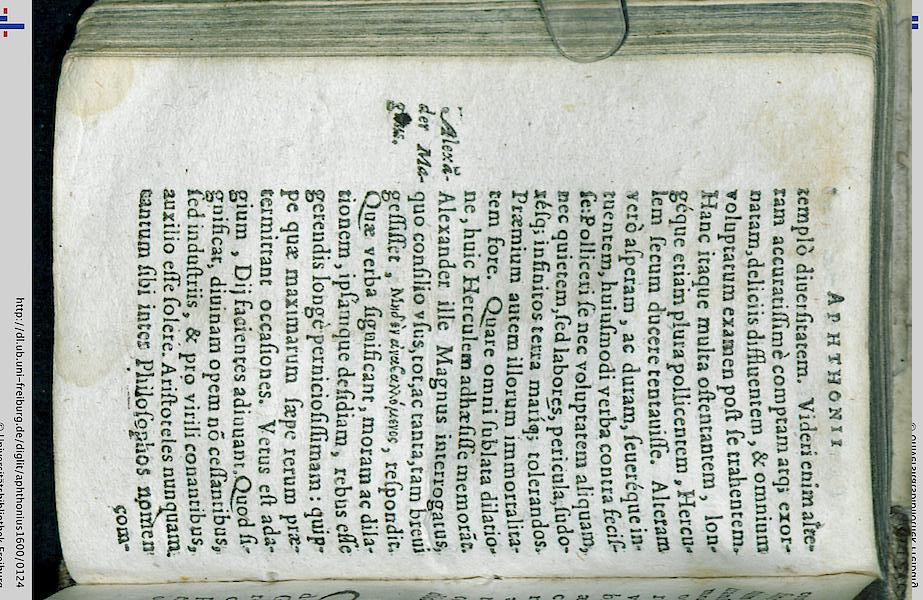 APHTHONII
templò diuersitatem. Videri enim alte-
ram accuratissimè comptam atq; exor-
natam, deliciis diffluentem, & omnium
voluptatum examen post se trahentem.
Hanc itaque multa ostentantem, lon-
géque etiam plura pollicentem, Hercu-
lem secum ducere tentauisse. Alteram
verò asperam, ac duram, seueréque in-
tuentem, huiusmodi verba contra fecis-
se: Polliceri se nec voluptatem aliquam,
nec quietem, sed labores, pericula, sudo-
résq; infinitos terra mariq; tolerandos.
Præmium autem illorum immortalita-
tem fore. Quare omni sublata dilatio-
ne, huic Herculem adhæsisse memorãt.
Alexander ille Magnus interrogatus,
quo consilio vsus, tot, ac tanta, tam breui
gessisset, Μηδὲν ἀναβαλλόμενος, respondit.
Quæ verba significant, moram ac dila-
tionem, ipsamque desidiam, rebus esse
gerendis longè perniciosissimam: quip-
pe quæ maximarum sæpe rerum præ-
termittant occasiones. Vetus est ada-
gium, Dij facientes adiuuant. Quod si-
gnificat, diuinam opem nõ cessantibus,
sed industriis, & pro virili conantibus,
auxilio esse solere. Aristoteles nunquam
tantum sibi inter Philosophos nomen
com-
Alexã-
der Ma-
http://dl.ub.uni-freiburg.de/diglit/aphthonius1600/0124
© Universitätsbibliothek Freiburg